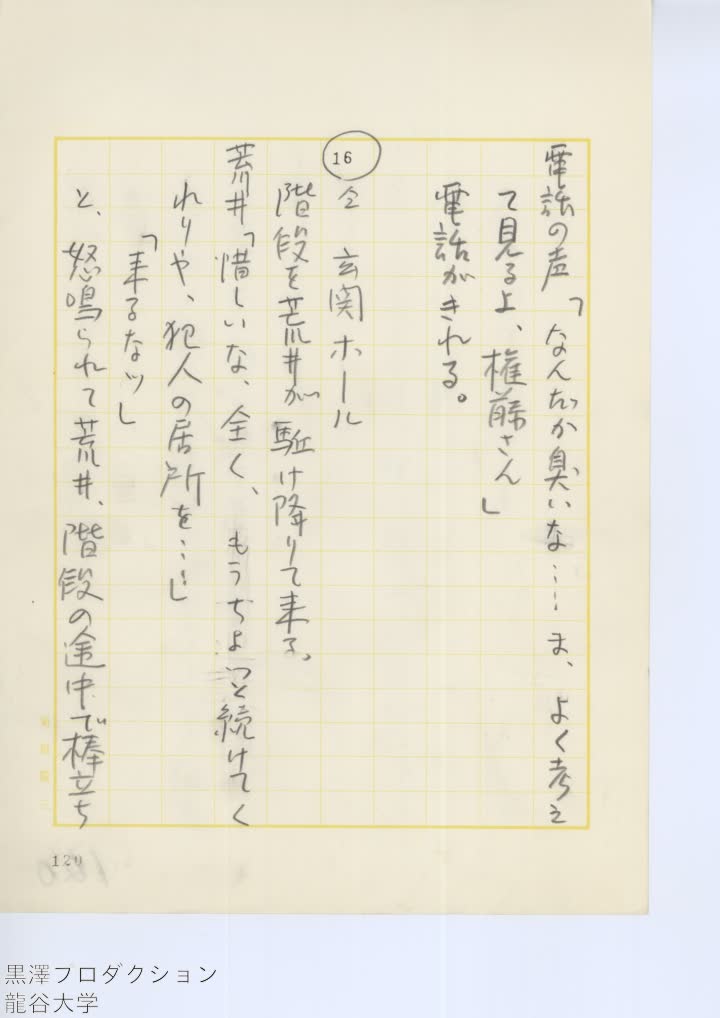 電話の声「なんだか臭いな……ま、よく考え
て見るよ、権藤さん」
電話がきれる。
16
仝 玄関ホール
階段を荒井が駈け降りて来る。
荒井「惜しいな、全く、もうちょっと続けてく
れりや、犯人の居所を……」
「来るなッ」
と、怒鳴られて荒井、階段の途中で棒立ち
120
黒澤プロダクション
龍谷大学